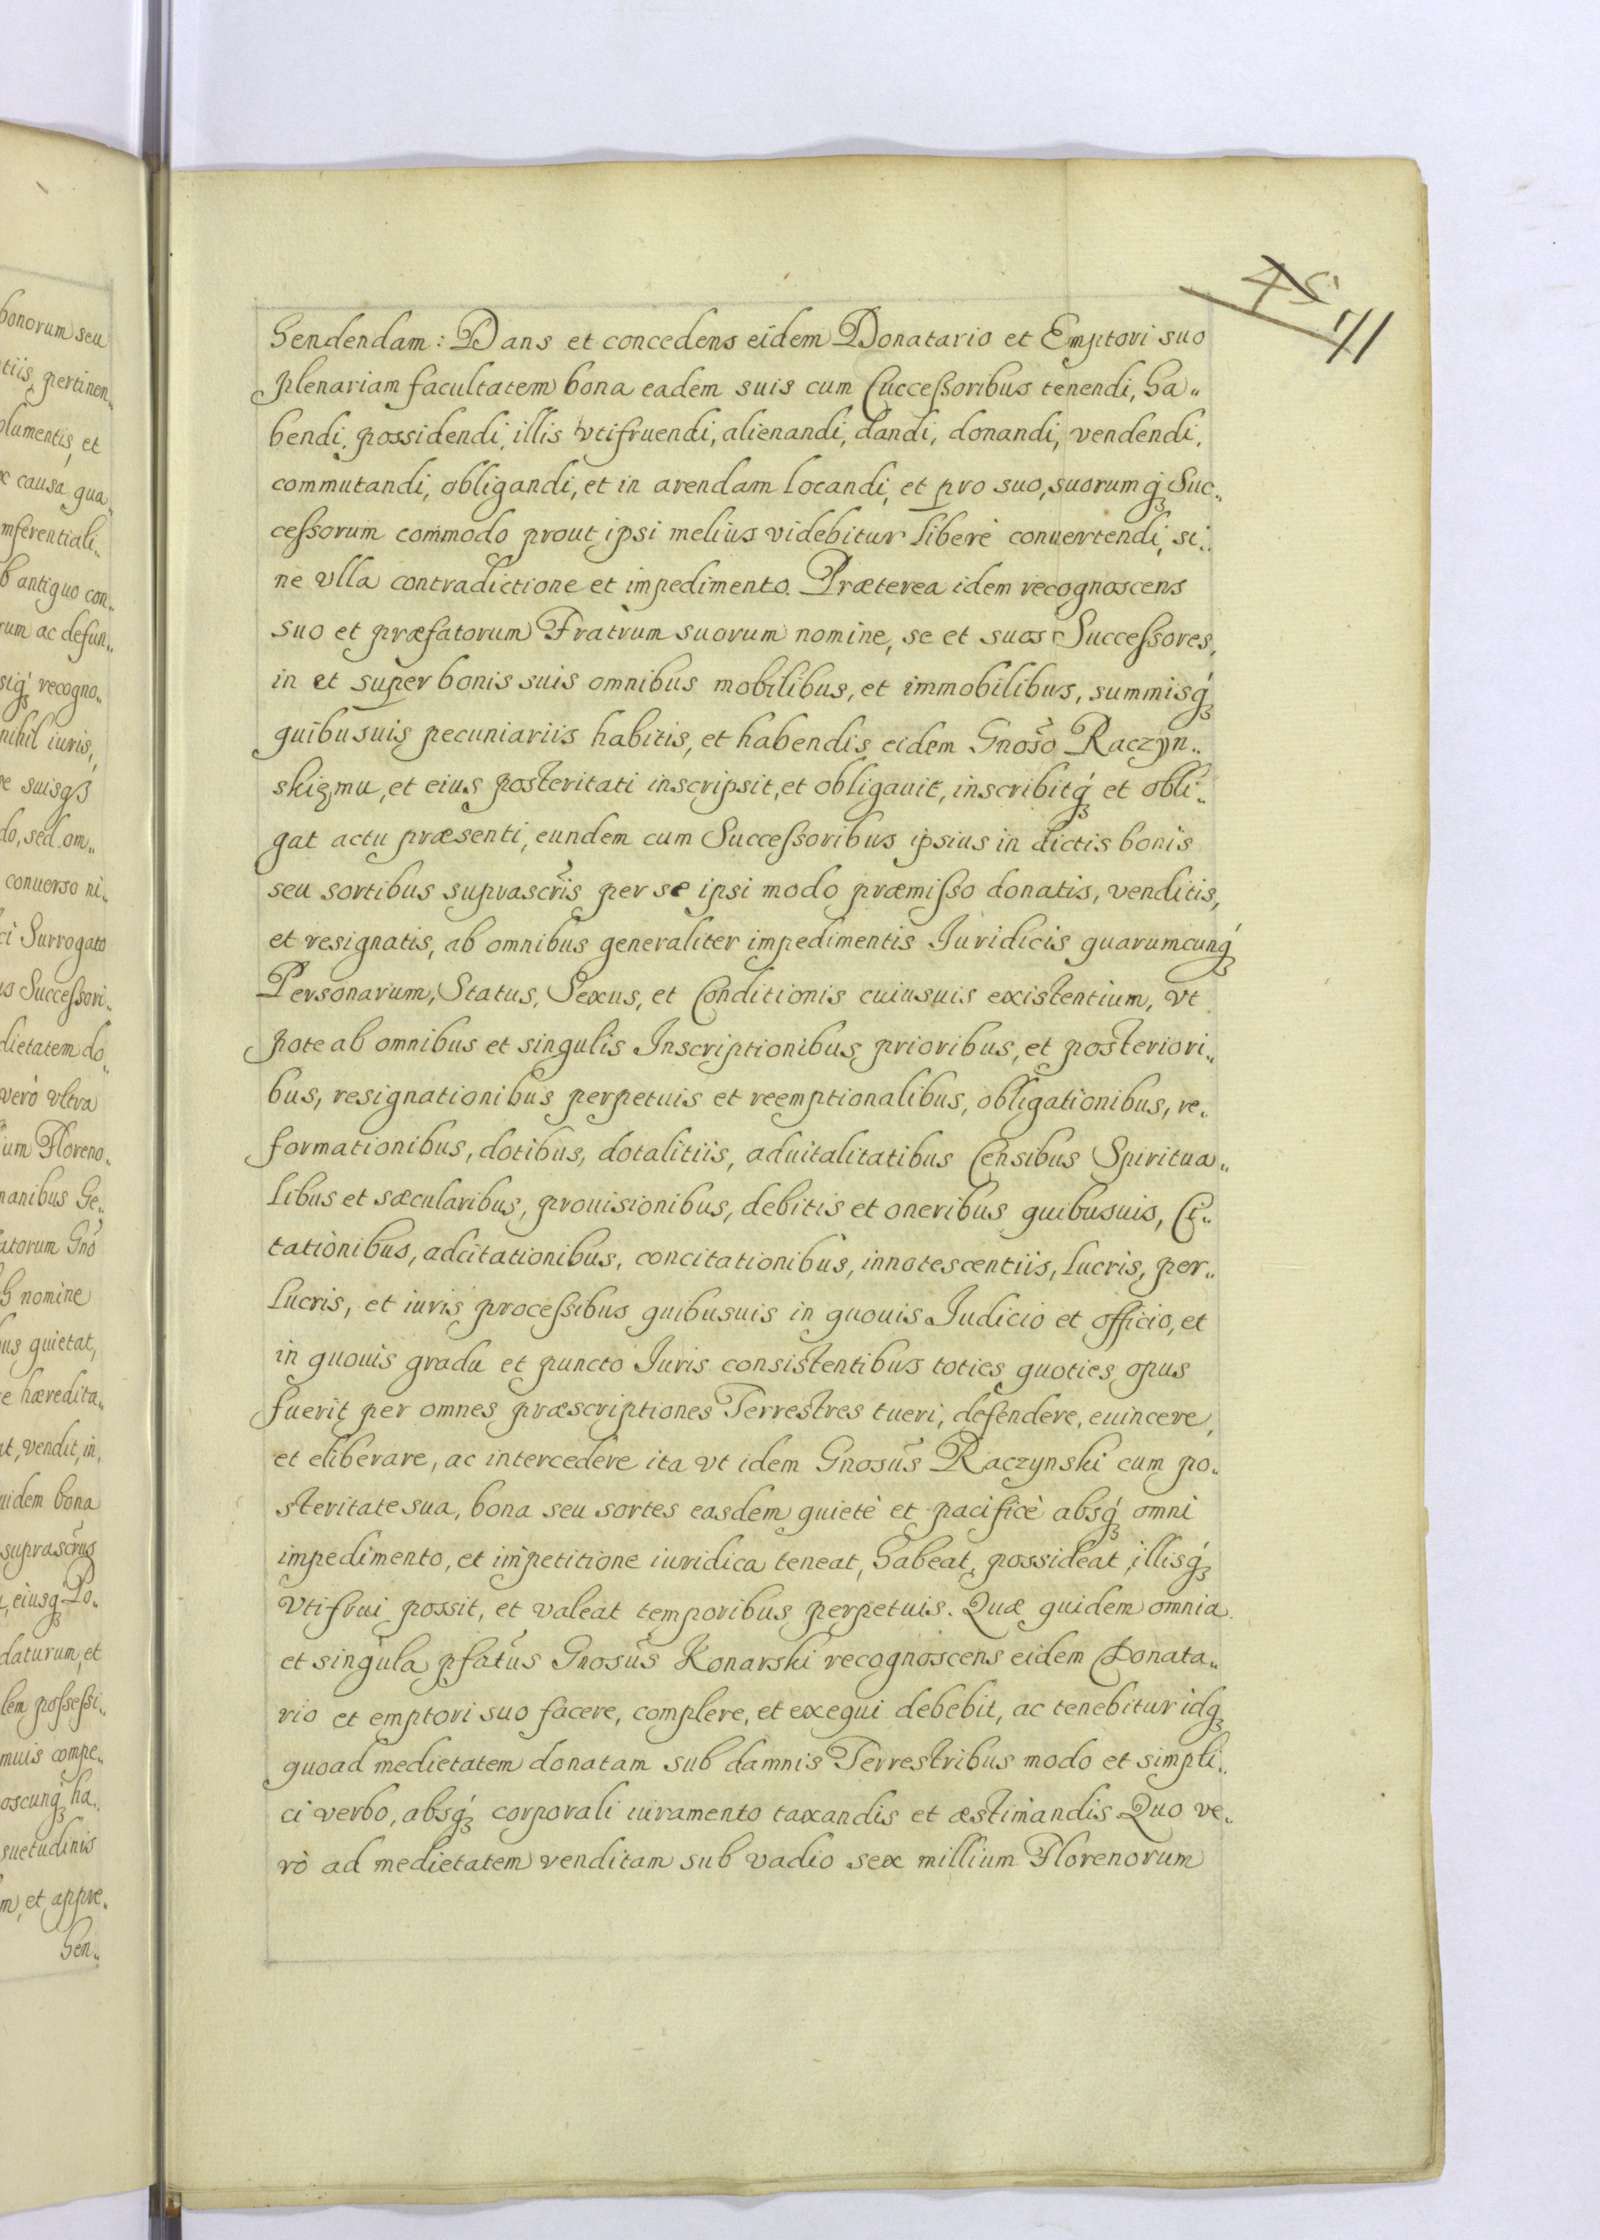 45
71
hendendam: Dans et concedens eidem Donatario et Emptori suo
plenariam facultatem bona eadem suis cum Successoribus tenendi, ha„
bendi, possidendi, illis vtifruendi, alienandi, dandi, donandi, vendendi,
commutandi, obligandi, et in arendam locandi, et pro suo, suorumq́ꝫ Suc„
cessorum commodo prout ipsi melius videbitur liberè conuertendi, si„
ne vlla contradictione et impedimento. Præterea idem recognoscens
suo et præfatorum Fratrum suorum nomine, se et suos Successores,
in et super bonis suis omnibus mobilibus, et immobilibus, summisq́ꝫ
quibusuis pecuniariis habitis, et habendis eidem Gnoso Raczyn„
skiemu, et eius posteritati inscripsit, et obligauit, inscribitq́ꝫ et obli„
gat actu præsenti, eundem cum Successoribus ipsius in dictis bonis
seu sortibus suprascris per se ipsi modo præmisso donatis, venditis,
et resignatis, ab omnibus generaliter impedimentis Iuridicis quarumcunq́ꝫ
Personarum, Status, Sexus, et Conditionis cuiusuis existentium, vt
pote ab omnibus et singulis Inscriptionibus prioribus, et posteriori„
bus, resignationibus perpetuis et reemptionalibus, obligationibus, re„
formationibus, dotibus, dotalitiis, aduitalitatibus Censibus Spiritua„
libus et sæcularibus, prouisionibus, debitis et oneribus quibusuis, Ci„
tationibus, adcitationibus, concitationibus, innotescentiis, lucris, per„
lucris, et iuris processibus quibusuis in quouis Iudicio et officio, et
in quouis gradu et puncto Iuris consistentibus toties quoties opus
fuerit per omnes præscriptiones Terrestres tueri, defendere, euincere,
et eliberare, ac intercedere ita vt idem Gnosus Raczynski cum po„
steritate sua, bona seu sortes easdem quietè et pacificè absq́ꝫ omni
impedimento, et impetitione iuridica teneat, habeat, possideat, illisq́ꝫ
vtifrui possit, et valeat temporibus perpetuis. Quæ quidem omnia
et singula pfatus Gnosus Konarski recognoscens eidem Donata„
rio et emptori suo facere, complere, et exequi debebit, ac tenebitur idqꝫ
quoad medietatem donatam sub damnis Terrestribus modo et simpli„
ci verbo, absq́ꝫ corporali iuramento taxandis et æstimandis Quo ve„
rò ad medietatem venditam sub vadio sex millium Florenorum
bonorum seu
tiis, pertinen„
olumentis, et
causa qua„
mferentiali„
b antiquo con„
rum ac defun„
sisq́ꝫ recogno„
nihil iuris,
suisqꝫ
do, sed om„
conuerso ni„
ci Surrogato
us Successori„
dietatem do„
verò vltra
um Floreno„
manibus Ge„
atorum Gno
nomine
bus quietat,
e hæredita„
at, vendit, in„
uidem bona
suprascrus
eiusqꝫ Po„
daturum, et
lem possessi„
muis compe„
oscunq́ꝫ ha„
suetudinis
m, et appre„
hen„